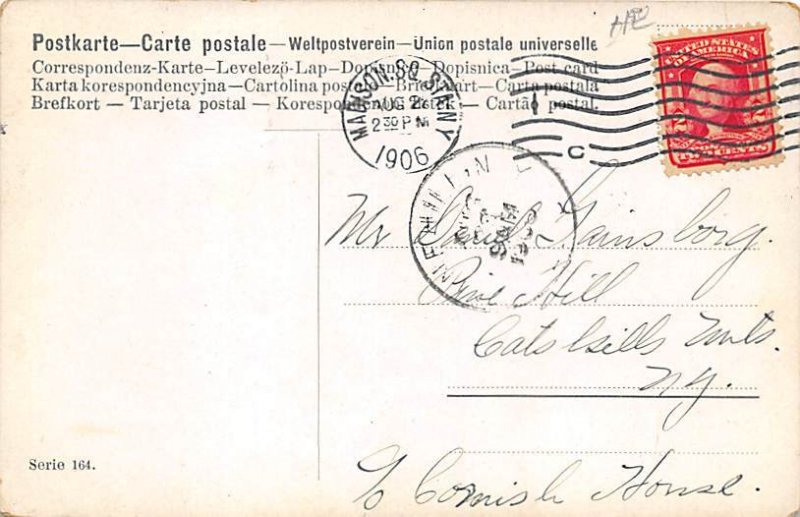 HE
Postkarte—Carte postale—Weltpostverein—Union postale universelle
Correspondenz-Karte—Levelezö-Lap—Dopisnice—Dopisnica—Post card
Karta korespondencyjna—Cartolina postale—Briefkaart—Carta postala
Brefkort — Tarjeta postal — Korespondenční lístek — Cartão postal.
MADISON SQ. STA. NY
AUG 2
2 30 PM
1906
C
UNITED STATES
OF AMERICA
TWO CENTS
PINE HILL N.Y.
Mr David Gainsborg.
Pine Hill
Catskills Mnts.
N.Y.
Serie 164.
c/o Cornish House.